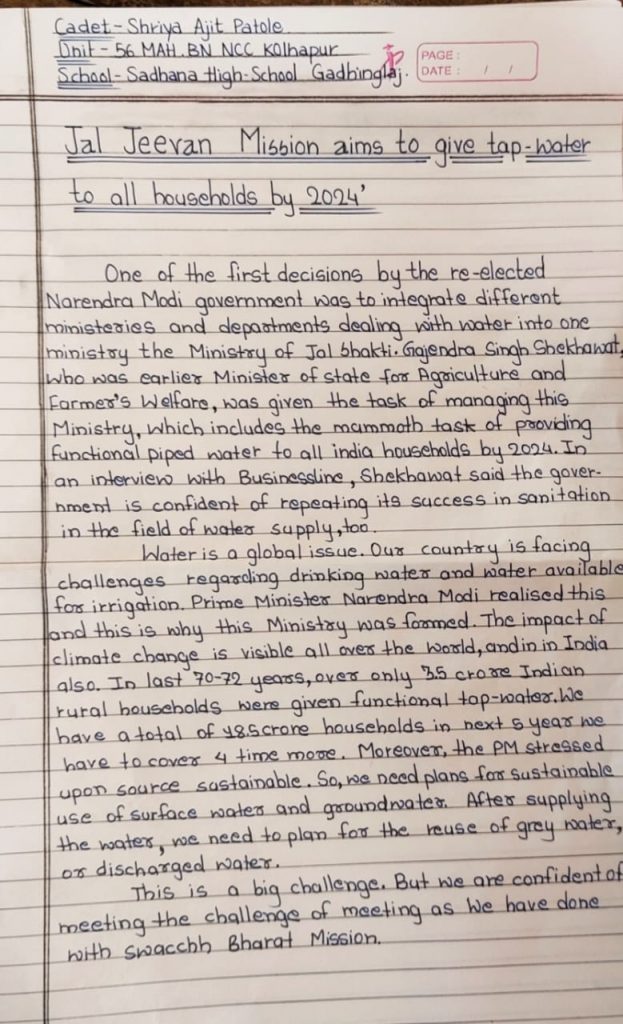 Cadet - Shriya Ajit Patole
Unit - 56 MAH.BN NCC Kolhapur
School - Sadhana High-School Gadhinglaj.
PAGE :
DATE : / /
Jal Jeevan Mission aims to give tap-water
to all households by 2024'
One of the first decisions by the re-elected
Narendra Modi government was to integrate different
ministeries and departments dealing with water into one
ministry the Ministry of Jal Shakti. Gajendra Singh Shekhawat,
who was earlier Minister of state for Agriculture and
Farmer's Welfare, was given the task of managing this
Ministry, which includes the mammoth task of providing
functional piped water to all india households by 2024. In
an interview with Businessline, Shekhawat said the gover-
nment is confident of repeating its success in sanitation
in the field of water supply, too.
Water is a global issue. Our country is facing
challenges regarding drinking water and water available
for irrigation. Prime Minister Narendra Modi realised this
and this is why this Ministry was formed. The impact of
climate change is visible all over the world, andin in India
also. In last 70-72 years, over only 3.5 crore Indian
rural households were given functional tap-water. We
have a total of 18.5crore households in next 5 year we
have to cover 4 time more. Moreover, the PM stressed
upon source sastainable. So, we need plans for sustainable
use of surface water and groundwater. After supplying
the water, we need to plan for the reuse of grey water,
or discharged water.
This is a big challenge. But we are confident of
meeting the challenge of meeting as we have done
with swacchh Bharat Mission.